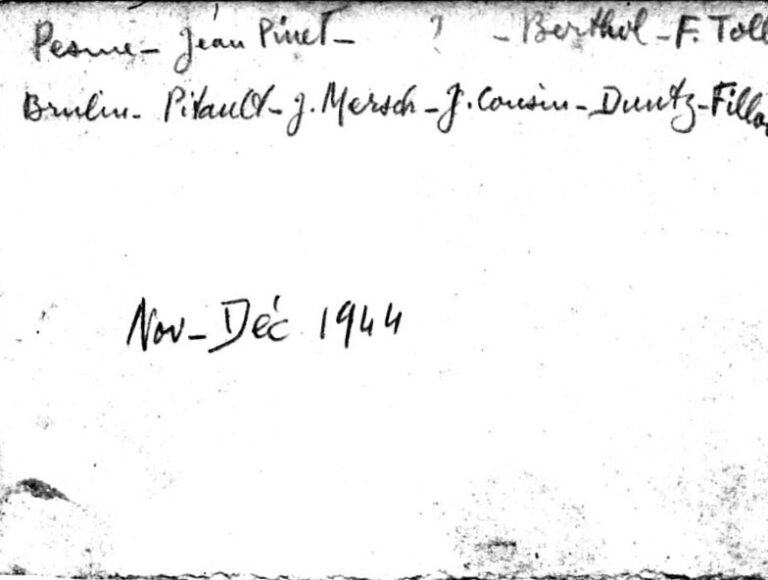 Pesme - Jean Pinet - ? - Berthol - F. Toll
Brulin - Pitault - J. Mersch - J. Cousin - Duntz - Fillo
Nov - Déc 1944